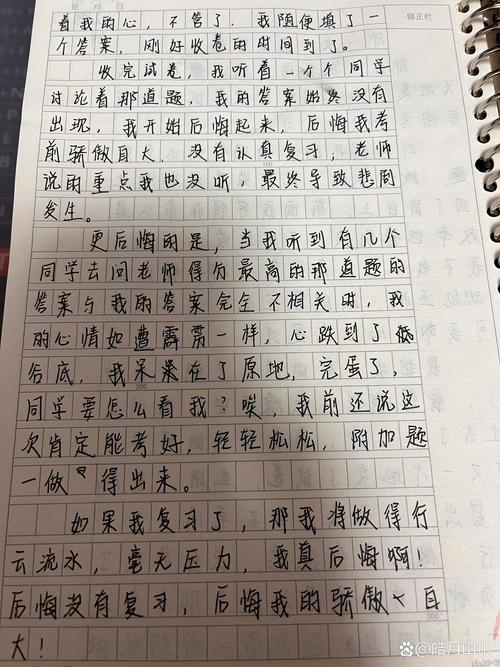 年 月 日
修正栏
着我的心，不管了，我随便填了一
个答案，刚好收卷的时间到了。
收完试卷，我听着一个个同学
讨论着那道题，我的答案始终没有
出现，我开始后悔起来，后悔我考
前骄傲自大，没有认真复习，老师
说的重点我也没听，最终导致悲剧
发生。
更后悔的是，当我听到有几个
同学去问老师得分最高的那道题的
答案与我的答案完全不相关时，我
的心情如遭霹雳一样，心跌到了低
谷底，我呆呆在了原地，完蛋了，
200
同学要怎么看我？唉，我前还说这
次肯定能考好，轻轻松松，附加题
一做 得出来。
如果我复习了，那我将做得行
云流水，毫无压力，我真后悔啊！
后悔没有复习，后悔我的骄傲 自
300
大！
皓月山川